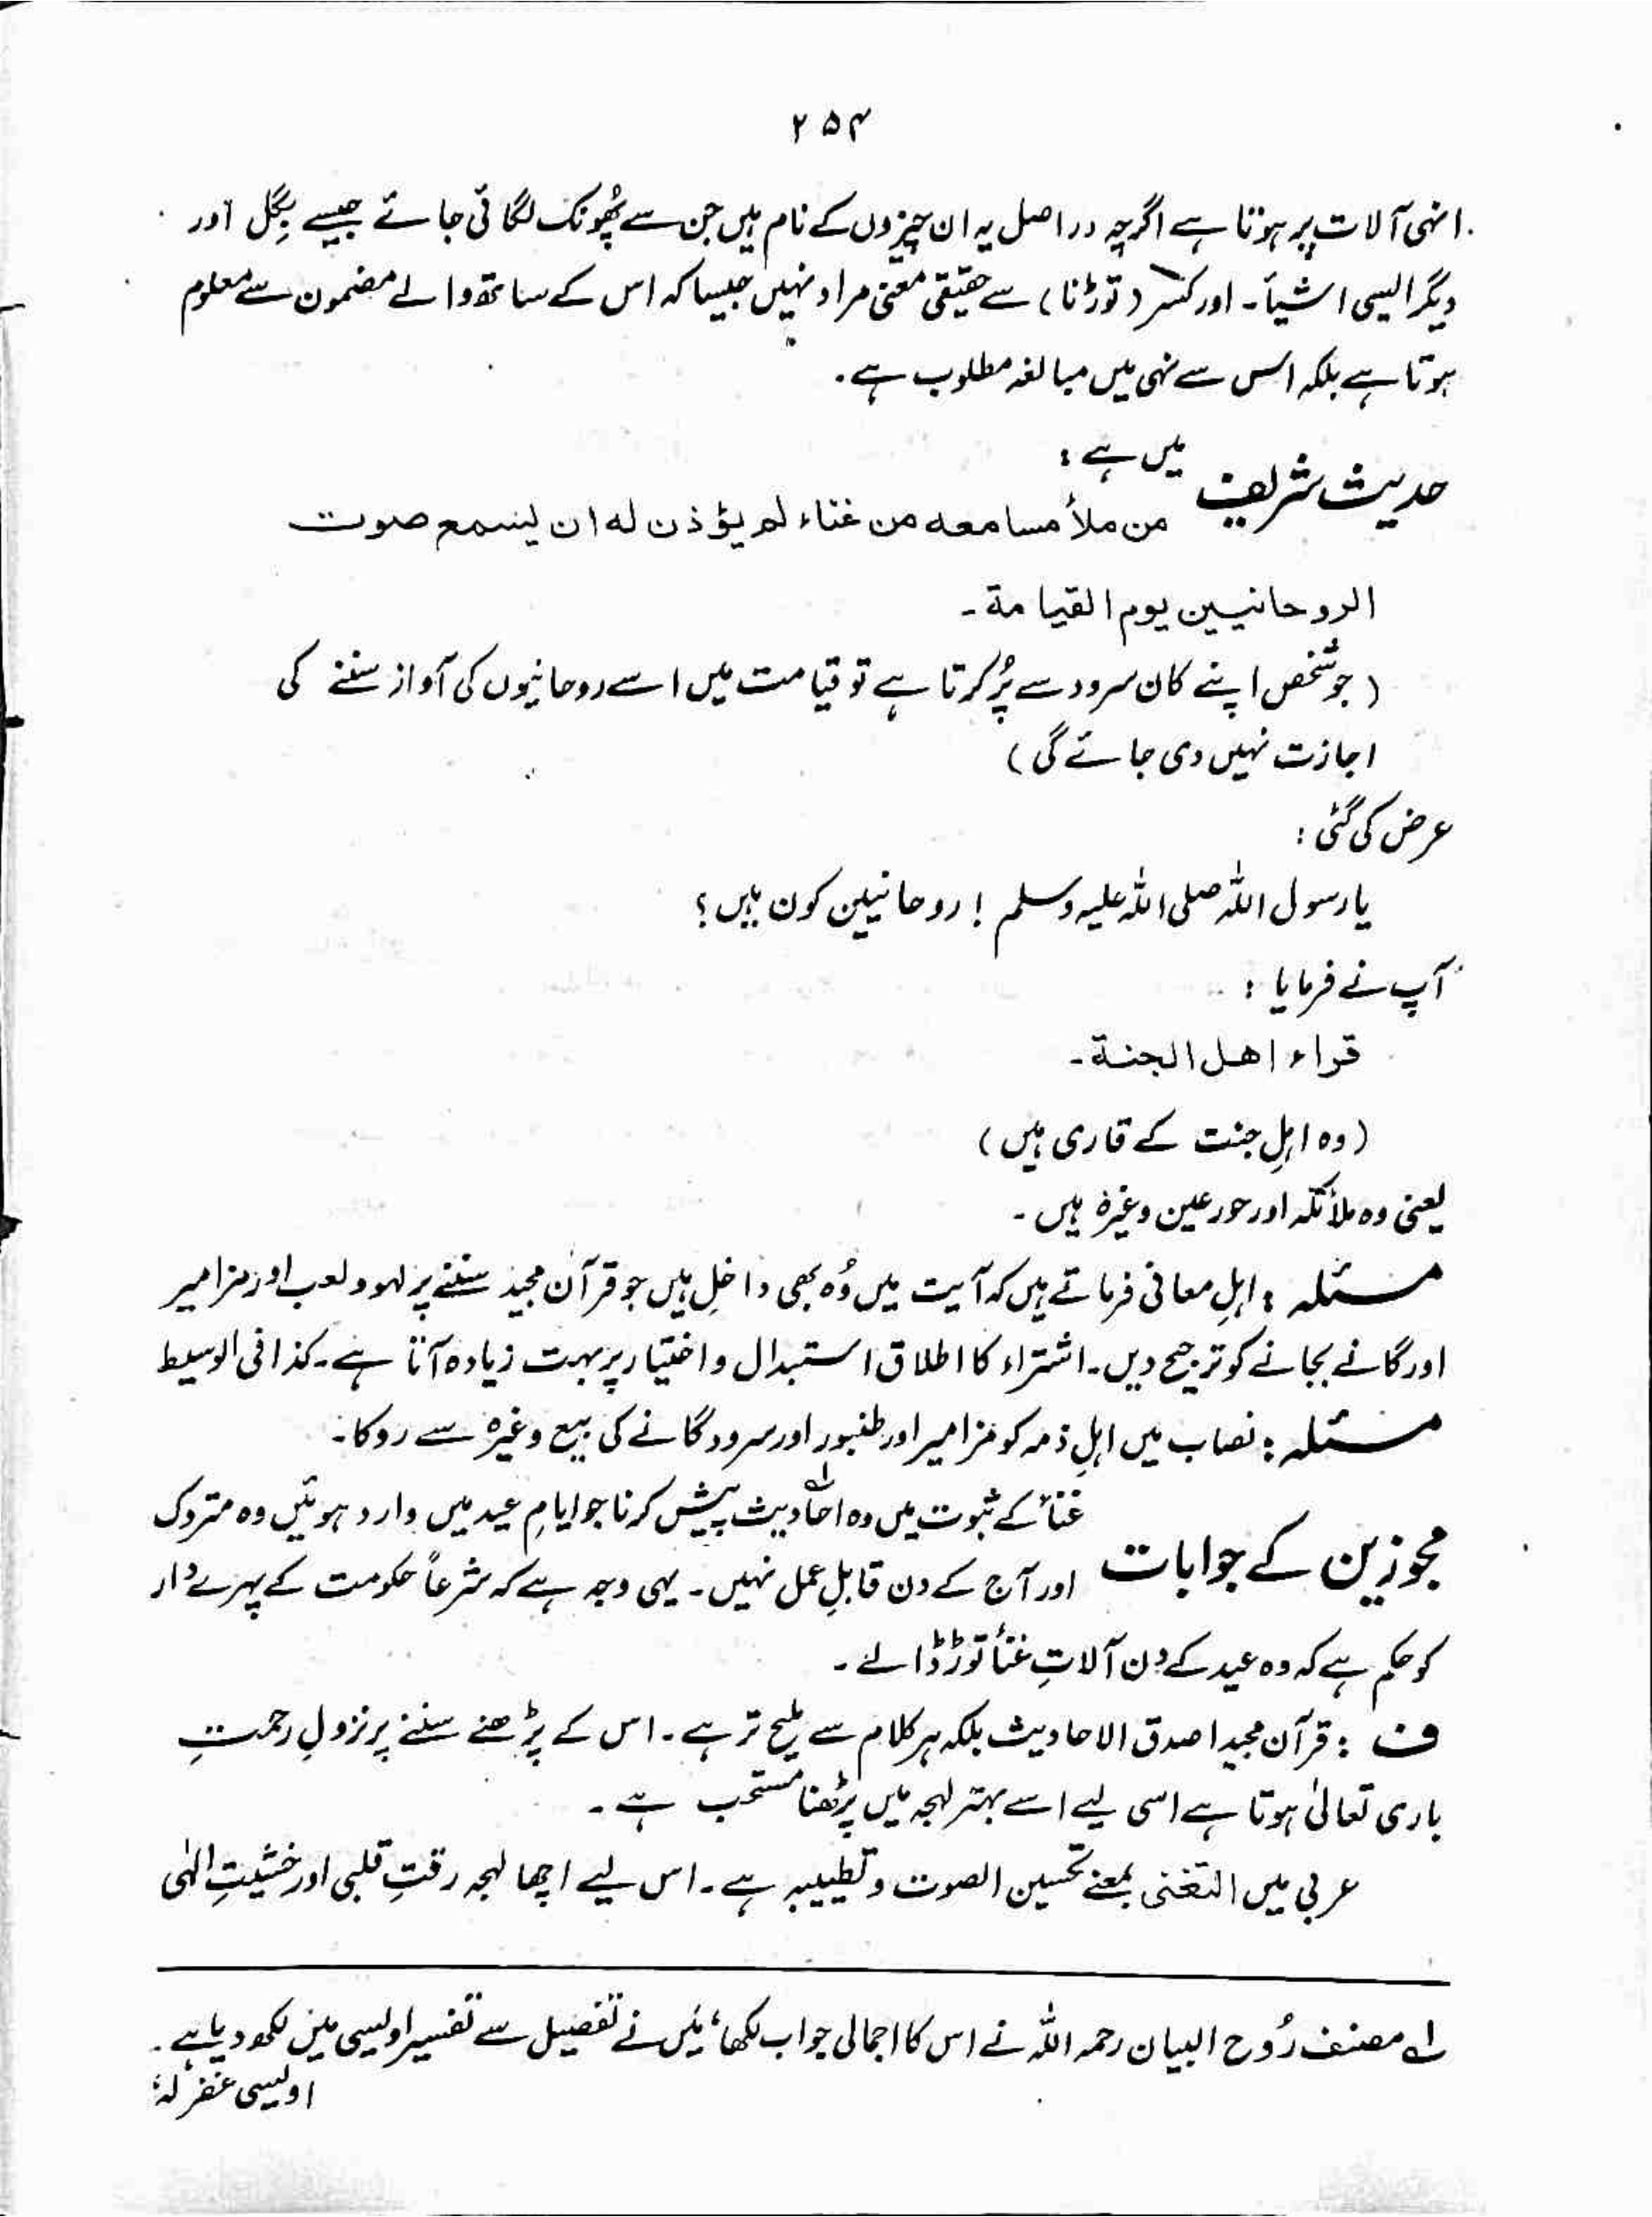 ۲۵۴
انہی آلات پر ہوتا ہے اگرچہ دراصل یہ ان چیزوں کے نام ہیں جن سے پُھونک لگائی جائے جیسے بِگل اور
دیگر ایسی اشیأ۔ اور کسر (توڑنا) سے حقیقی معنیٰ مراد نہیں جیسا کہ اس کے ساتھ والے مضمون سے معلوم
ہوتا ہے بلکہ اس سے نہی میں مبالغہ مطلوب ہے۔
حدیث شریف میں ہے :
من ملأ مسامعه من غناء لم يؤذن له ان يسمع صوت
الروحانيين يوم القيامة۔
(جو شخص اپنے کان سرود سے پُر کرتا ہے تو قیامت میں اسے روحانیوں کی آواز سننے کی
اجازت نہیں دی جائے گی)
عرض کی گئی :
یا رسول اللہ صلی اللہ علیہ وسلم ! روحانیین کون ہیں ؟
آپ نے فرمایا :
قراء اهل الجنة۔
(وہ اہلِ جنت کے قاری ہیں)
یعنی وہ ملائکہ اور حورعین وغیرہٗ ہیں۔
مسئلہ : اہلِ معانی فرماتے ہیں کہ آیت میں وُہ بھی داخل ہیں جو قرآن مجید سننے پر لہو و لعب اور مزامیر
اور گانے بجانے کو ترجیح دیں۔ اشتراء کا اطلاق استبدال و اختیار پر بہت زیادہ آتا ہے۔ کذا فی الوسیط
مسئلہ : نصاب میں اہلِ ذمہ کو مزامیر اور طنبور اور سرود گانے کی بیع وغیرہ سے روکا۔
مجوزین کے جوابات غنأ کے ثبوت میں وہ احادیث لے پیش کرنا جو ایامِ عید میں وارد ہوئیں وہ متروک
اور آج کے دن قابلِ عمل نہیں۔ یہی وجہ ہے کہ شرعاً حکومت کے پہرے دار
کو حکم ہے کہ وہ عید کے دن آلاتِ غنأ توڑ ڈالے۔
ف : قرآن مجید اصدق الاحادیث بلکہ ہر کلام سے ملیح تر ہے۔ اس کے پڑھنے سننے پر نزولِ رحمتِ
باری تعالیٰ ہوتا ہے اسی لیے اسے بہتر لہجہ میں پڑھنا مستحب ہے۔
عربی میں التغنی بمعنے تحسین الصوت و تطییبہ ہے۔ اس لیے اچھا لہجہ رقتِ قلبی اور خشیتِ الٰہی
لے مصنف رُوح البیان رحمہ اللہ نے اس کا اجمالی جواب لکھا، مَیں نے تفصیل سے تفسیر اویسی میں لکھ دیا ہے۔
اویسی غفرلہٗ